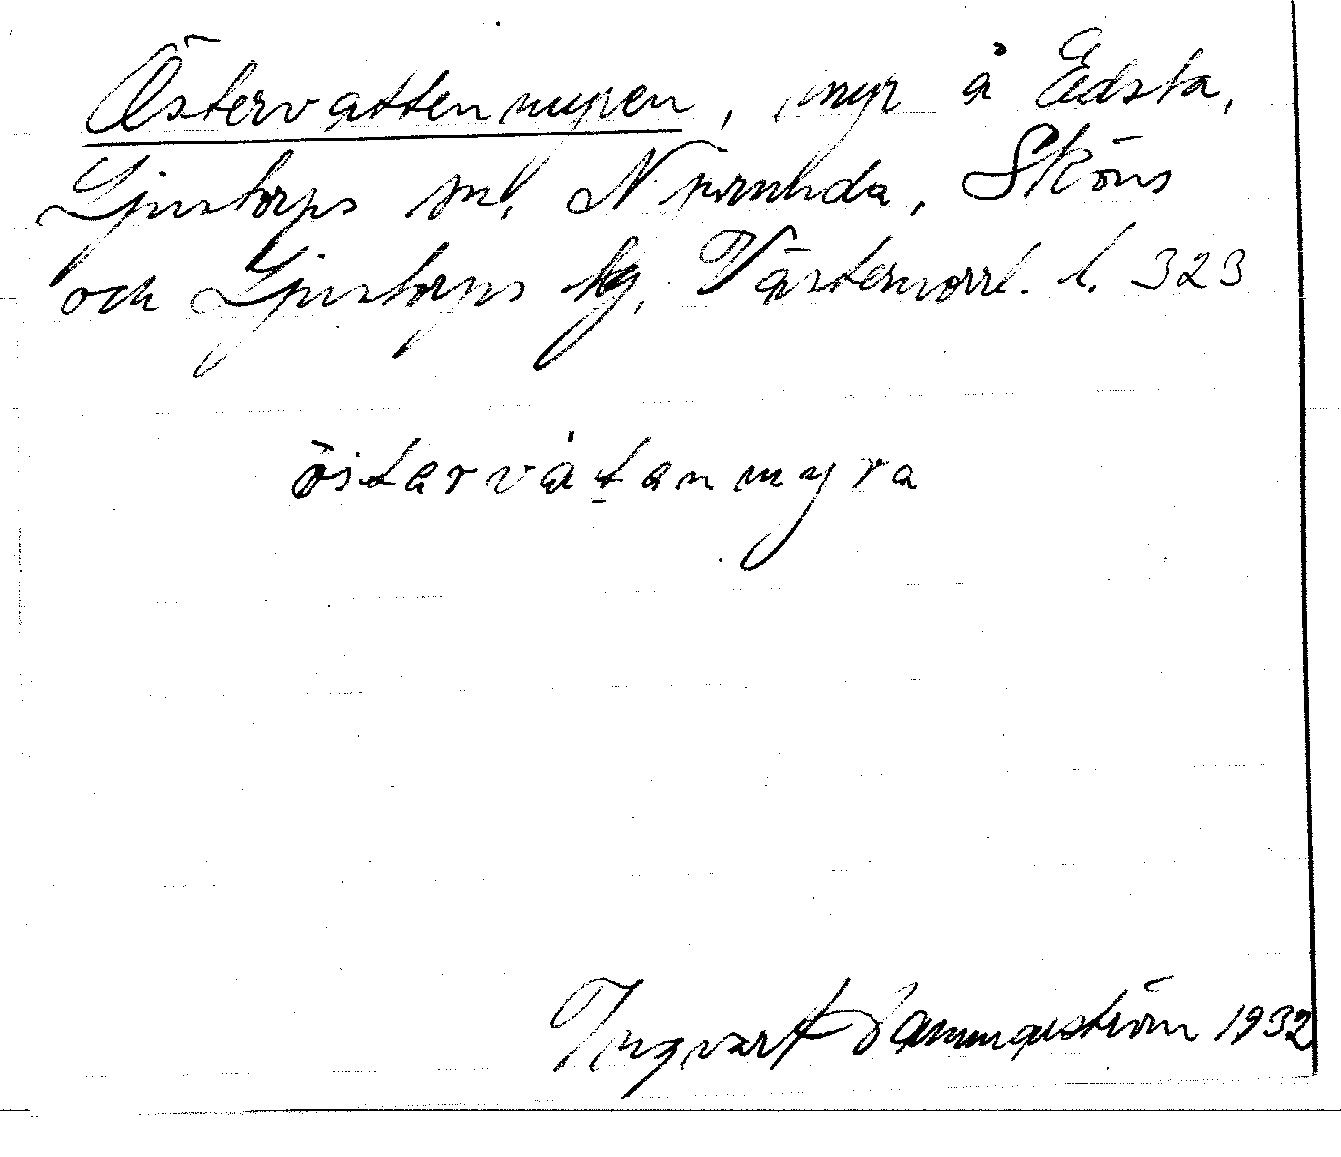 Östervattenmyren, myr å Edsta,
Ljustorps sn, N Njurunda, Sköns
och Ljustorps tg, Västernorrl. l. 323
östarvátanmyra
Ingvar Hammarström 1932